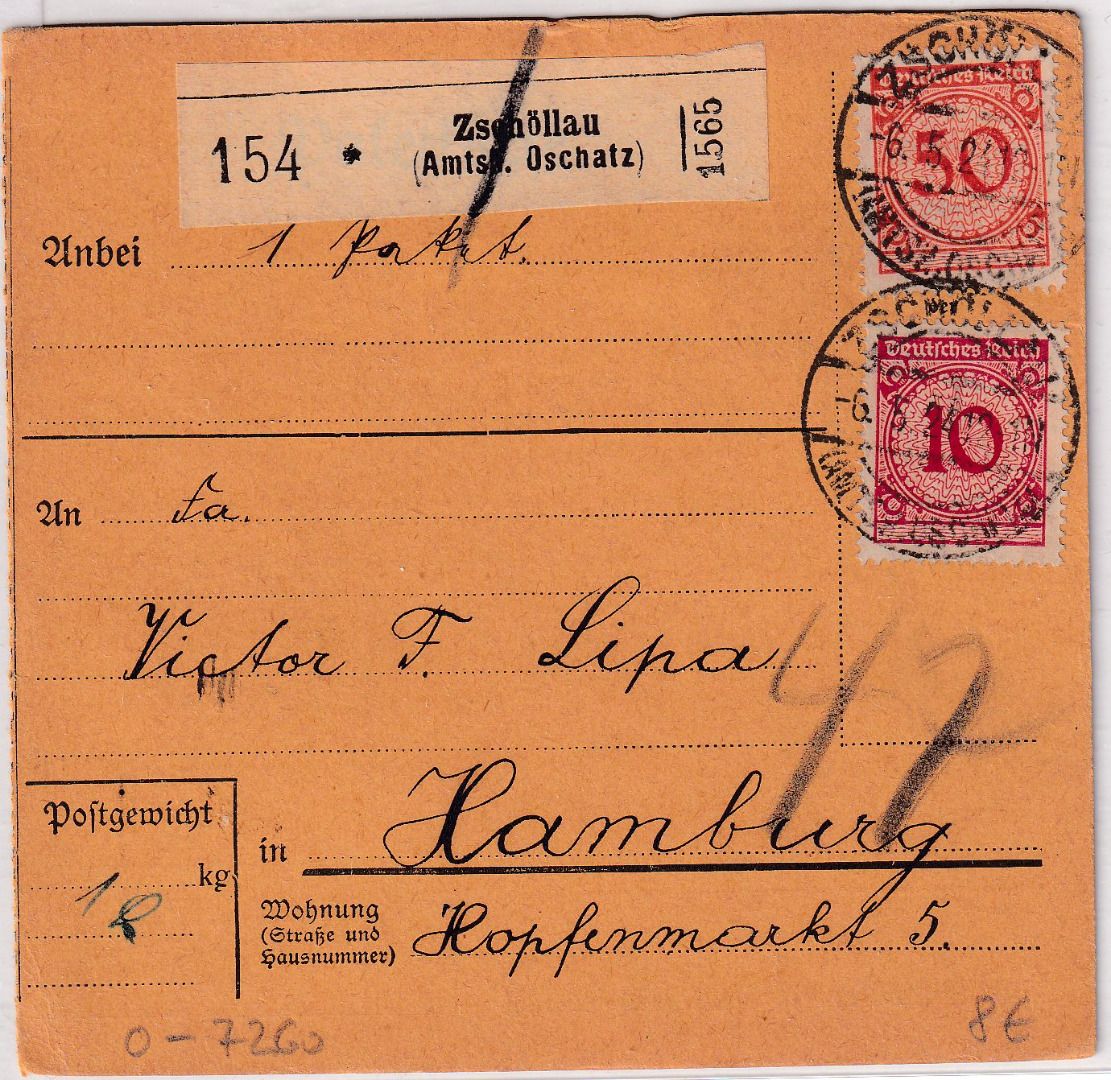 154 * Zschöllau
(Amtsb. Oschatz)
1565
Anbei 1 Paket.
Deutsches Reich
50
Deutsches Reich
10
An Fa.
Victor F. Lipa
47
Postgewicht
1 kg
in Hamburg
Wohnung
(Straße und
Hausnummer)
Hopfenmarkt 5.
0-7260
8€